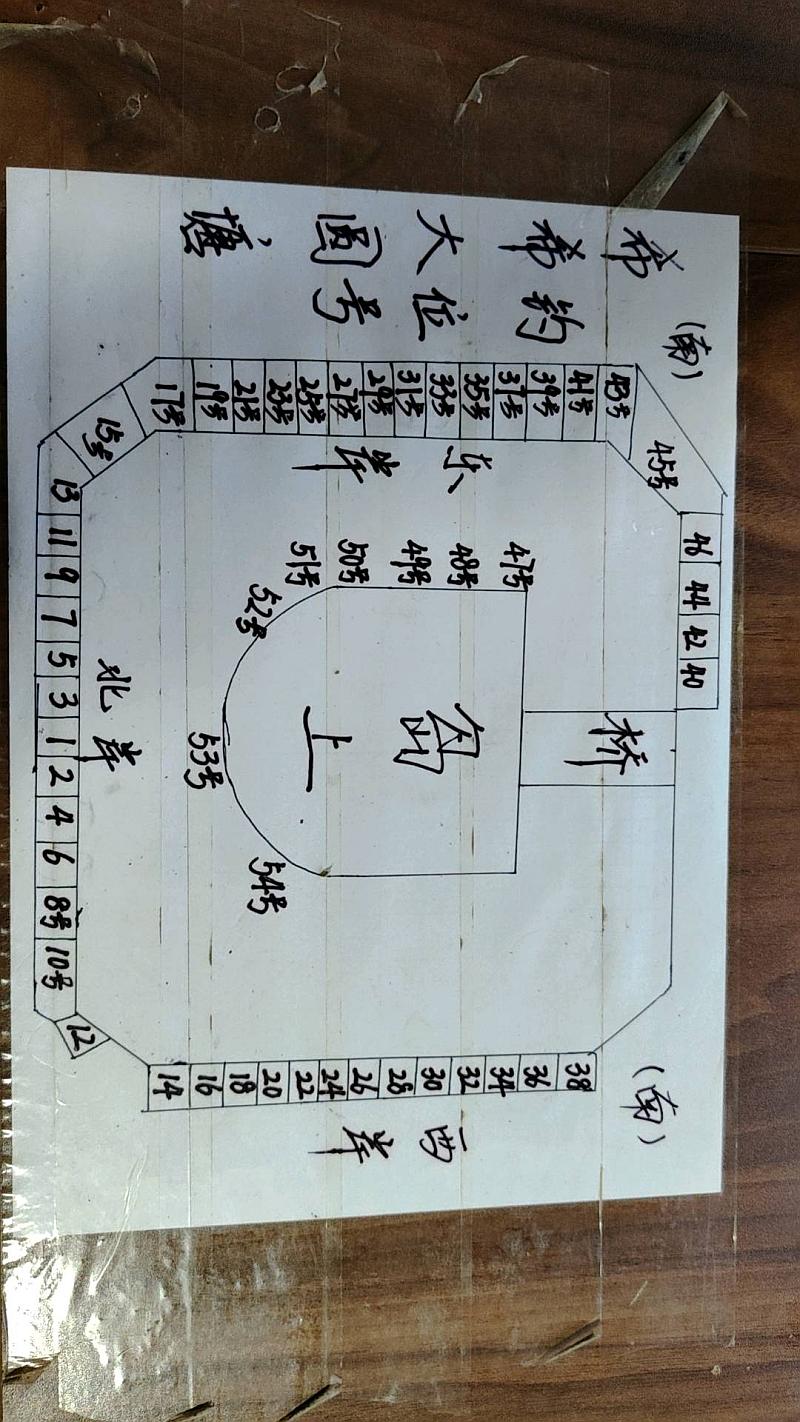 希希大圆塘
钓位号
(南)
46 44 42 40
45号
43号
41号
39号
37号
35号
33号
31号
29号
27号
25号
23号
21号
19号
17号
15号
东岸
桥
47号
48号
49号
50号
51号
52号
53号
54号
岛上
(南)
38
36
34
32
30
28
26
24
22
20
18
16
14
西岸
12
北岸
13 11 9 7 5 3 1 2 4 6 8号 10号